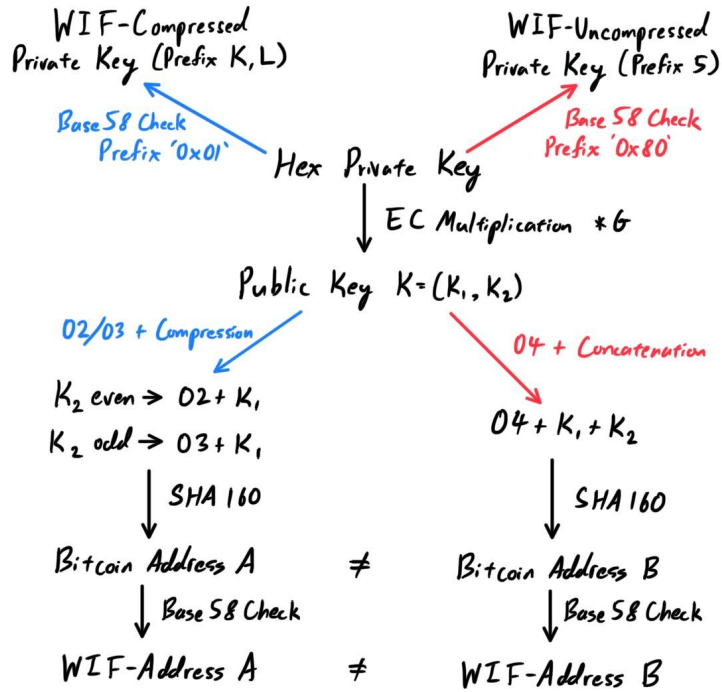 WIF-Compressed
Private Key (Prefix K, L)
WIF-Uncompressed
Private Key (Prefix 5)
Base 58 Check
Prefix '0x01'
Base 58 Check
Prefix '0x80'
Hex Private Key
EC Multiplication *G
Public Key K=(K₁, K₂)
02/03 + Compression
04 + Concatenation
K₂ even → 02 + K₁
K₂ odd → 03 + K₁
04 + K₁ + K₂
SHA 160
SHA 160
Bitcoin Address A ≠ Bitcoin Address B
Base 58 Check
Base 58 Check
WIF-Address A ≠ WIF-Address B